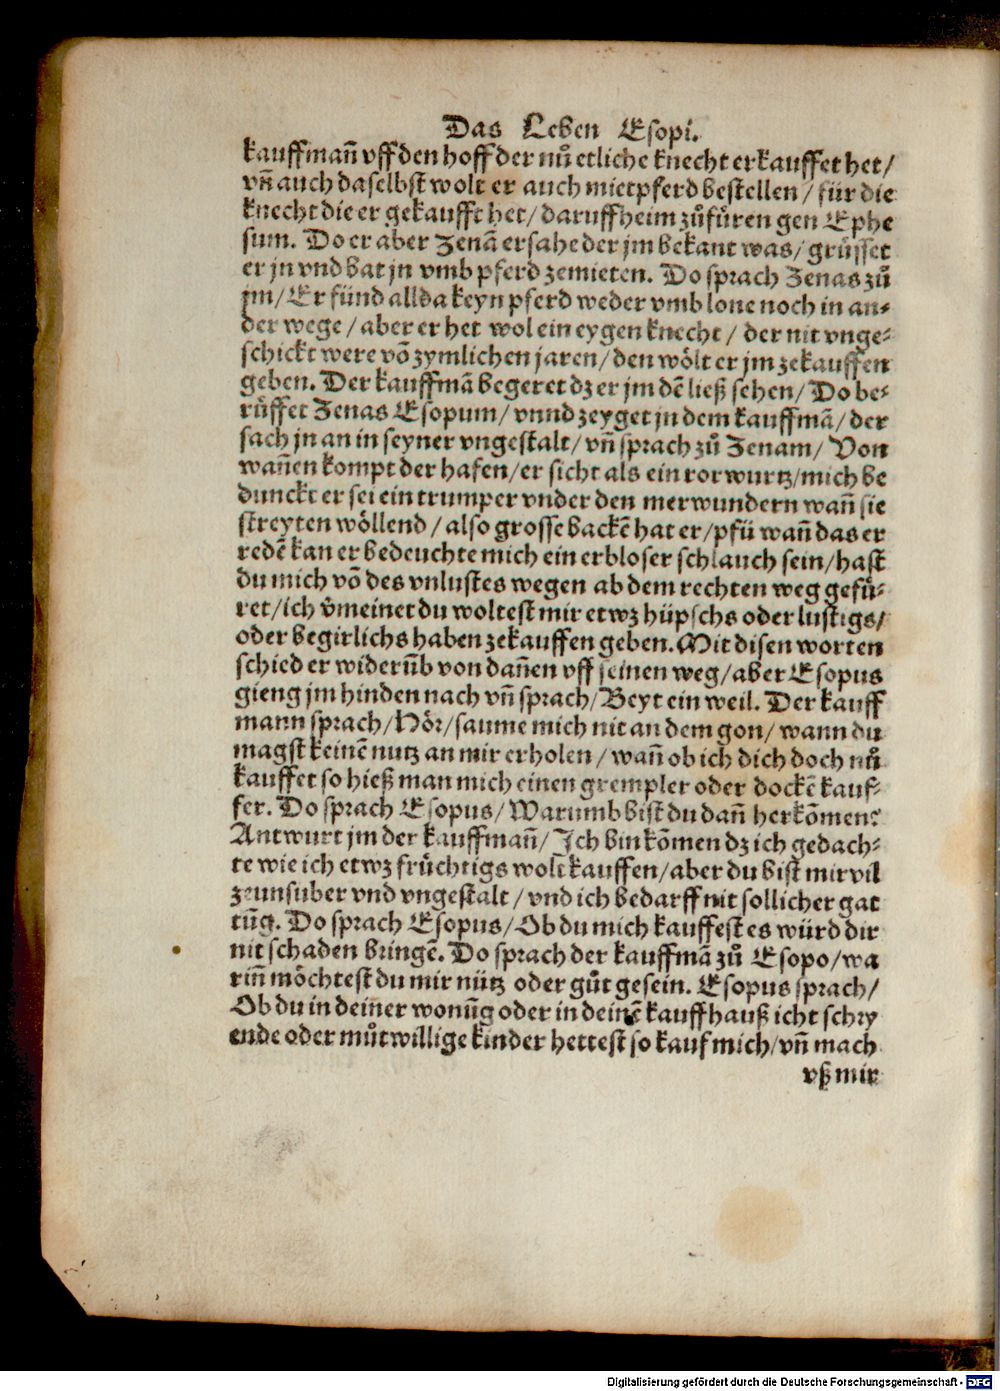 Das Leben Esopi.
kauffmañ vff den hoff der nuͦ etliche knecht erkauffet het/
vñ auch daselbst wolt er auch mietpferd bestellen/ für die
knecht die er gekaufft het/ daruff heim zuͦfuͤren gen Ephe
sum. Do er aber Zenā ersahe der jm bekant was/ gruͤsset
er jn vnd bat jn vmb pferd zemieten. Do sprach Zenas zuͦ
jm/ Er fünd allda keyn pferd weder vmb lone noch in an⸗
der wege/ aber er het wol ein eygen knecht/ der nit vnge⸗
schickt were võ zymlichen jaren/ den woͤlt er jm zekauffen
geben. Der kauffmā begeret dz er jm dē ließ sehen/ Do be⸗
ruͤffet Zenas Esopum/ vnnd zeyget jn dem kauffmā/ der
sach jn an in seyner vngestalt/ vñ sprach zuͦ Zenam/ Von
wañen kompt der hafen/ er sicht als ein rorwurtz/ mich be
dunckt er sei ein trumper vnder den merwundern wañ sie
streyten woͤllend/ also grosse backē hat er/ pfü wañ das er
redē kan er bedeuchte mich ein erbloser schlauch sein/ hast
du mich võ des vnlustes wegen ab dem rechten weg gefuͤ⸗
ret/ ich v̄meinet du woltest mir etwz hüpschs oder lustigs/
oder begirlichs haben zekauffen geben. Mit disen worten
schied er widerūb von dañen vff seinen weg/ aber Esopus
gieng jm hinden nach vñ sprach/ Beyt ein weil. Der kauff
mann sprach/ Hoͤr/ saume mich nit an dem gon/ wann du
magst keinē nutz an mir erholen/ wañ ob ich dich doch nuͦ
kauffet so hieß man mich einen grempler oder dockē kauf⸗
fer. Do sprach Esopus/ Warumb bist du dañ herkōmen?
Antwurt jm der kauffmañ/ Ich bin kōmen dz ich gedach⸗
te wie ich etwz fruͤchtigs wolt kauffen/ aber du bist mir vil
zeunsuber vnd vngestalt/ vnd ich bedarff nit sollicher gat
tūg. Do sprach Esopus/ Ob du mich kauffest es würd dir
nit schaden bringē. Do sprach der kauffmā zuͦ Esopo/ wa
riñ moͤchtest du mir nütz oder guͦt gesein. Esopus sprach/
Ob du in deiner wonūg oder in deinē kauffhauß icht schry
ende oder muͦtwillige kinder hettest so kauf mich/ vñ mach
vß mir
Digitalisierung gefördert durch die Deutsche Forschungsgemeinschaft - DFG